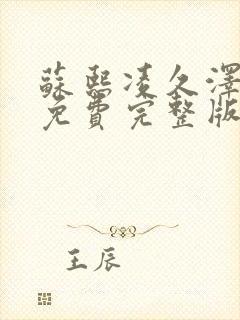 蘇熙凌久澤
免費完整版
王辰